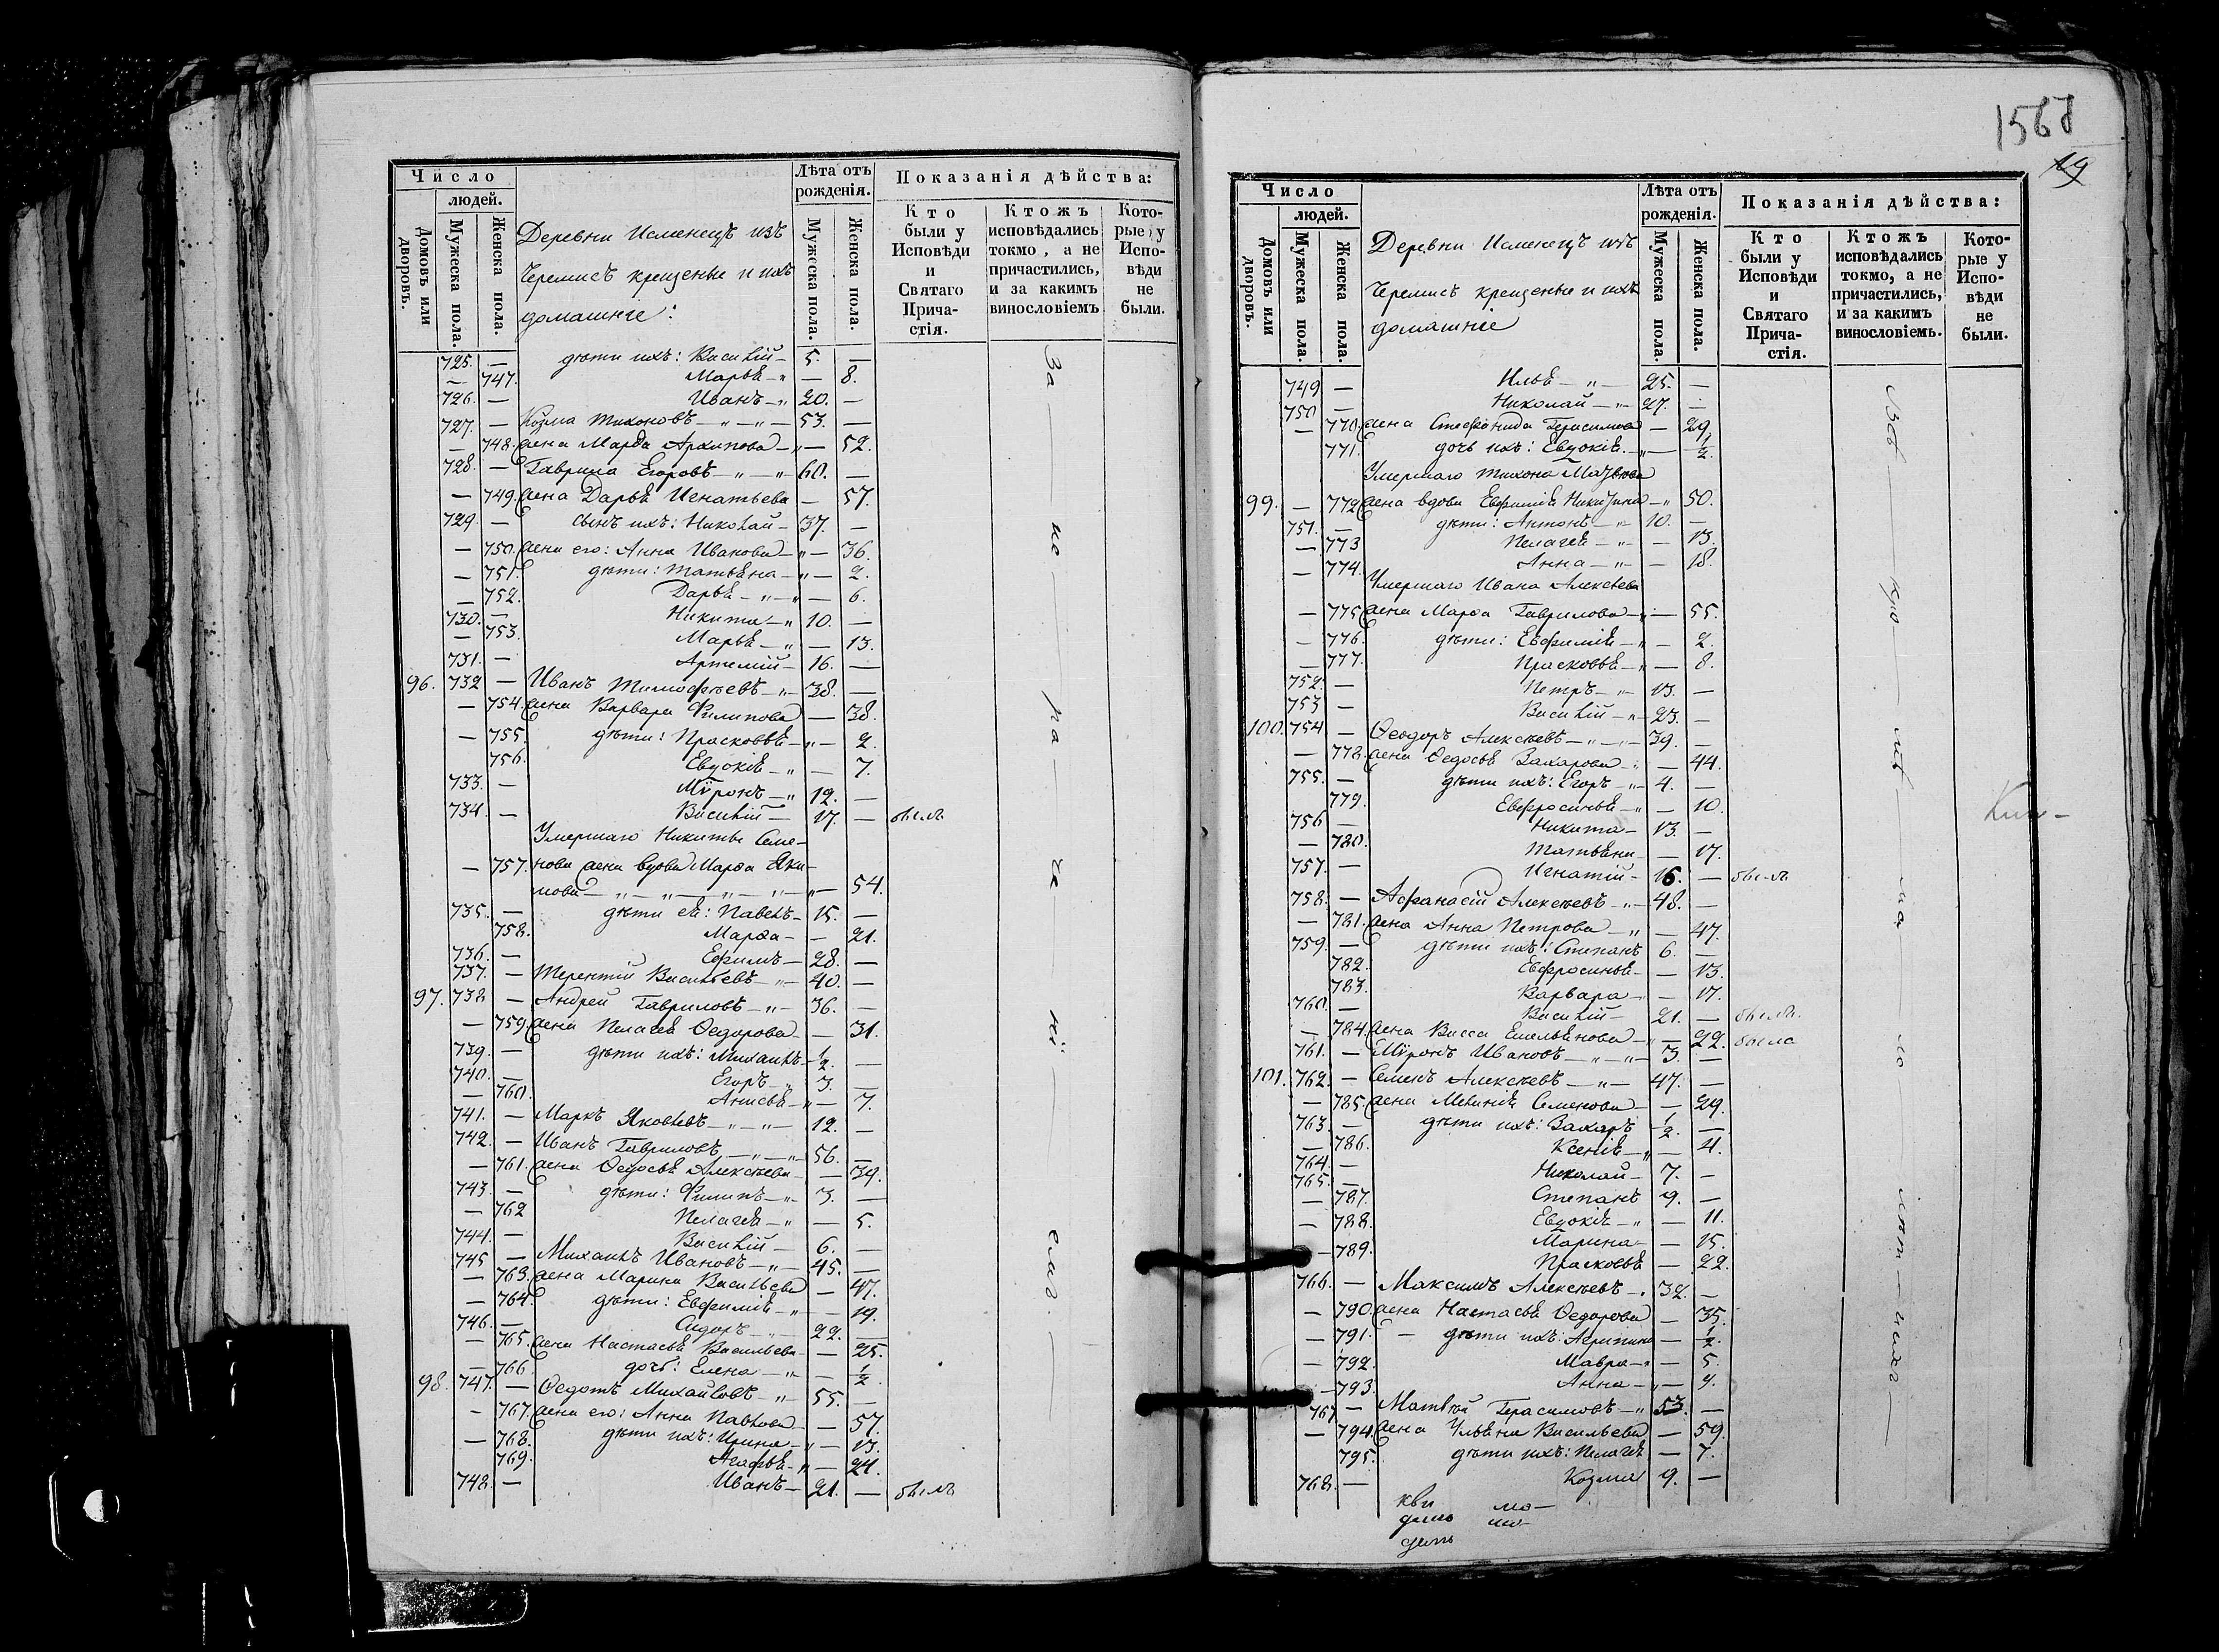 Число
людей.
Домовъ или дворовъ.
Мужеска пола.
Женска пола.
Деревни Исменецъ изъ
Черемисъ крещеные и ихъ
домашніе:
Лѣта отъ
рожденія.
Мужеска пола.
Женска пола.
Показанія дѣйства:
Кто
были у
Исповѣди
и
Святаго
Прича-
стія.
Ктожъ
исповѣдались
токмо, а не
причастились,
и за какимъ
винословіемъ
Кото-
рые у
Испо-
вѣди
не
были.
725. — дѣти ихъ: Василій — 5. —
— 747. Марья — " — 8.
726. — Иванъ — " 20. —
727. — Козма Тихоновъ — " — " — 53. —
— 748. жена Марѳа Архипова — " — 52.
728. — Гаврила Егоровъ — " — " 60. —
— 749. жена Дарья Игнатьева — 57.
729. — сынъ ихъ: Николай — 37. —
— 750. жена его: Анна Иванова — " — 36.
— 751. дѣти: Татьяна — " — 2.
— 752. Дарья — " — " — 6.
730. — Никита — " 10. —
— 753. Марья — " — 13.
731. — Артемій — 16. —
96. 732 — Иванъ Тимофѣевъ — " — 38. —
— 754. жена Варвара Филипова — 38.
— 755. дѣти: Прасковья — " — 2.
756. Евдокія — " — 7.
733. — Мѵронъ — " 12. —
734. — Василій — 17. — былъ
Умершаго Никиты Семе-
— 757. нова жена вдова Марѳа Яки-
мова — " — " — " — " — " — 54.
735. — дѣти ея: Павелъ — 15. —
758. Марѳа — — 21.
736. — Ефимъ — 28. —
737. — Терентій Васильевъ — " — 40. —
97. 738 — Андрей Гавриловъ — " — 36. —
— 759. жена Пелагея Ѳедорова — — 31.
739. — дѣти ихъ: Михаилъ — 1/2. —
740. — Егоръ — " 3. —
— 760. Анисья — " — 7.
741. — Маркъ Яковлевъ — " — " — 12. —
742. — Иванъ Гавриловъ — " — " — 56. —
— 761. жена Ѳедосья Алексѣева — — 39.
743. — дѣти: Филипъ — " — 3. —
— 762 Пелагея — " — 5.
744. — Василій — 6. —
745 — Михаилъ Ивановъ — " — 45. —
— 763. жена Марина Васильева — 47.
— 764. дѣти: Евфимія — " — 19.
746. — Сидоръ — " — 22. —
— 765. жена Настасья Васильева — — 25.
— 766. дочь: Елена — " — — 1/2
98. 747. — Ѳедотъ Михайловъ — " — 55. —
— 767. жена его: Анна Павлова — — 57.
— 768. дѣти ихъ: Ирина — " — 13.
769. Агафья — " — 24.
748. — Иванъ — 21. — былъ
1568
19
Число
людей.
Домовъ или дворовъ.
Мужеска пола.
Женска пола.
Деревни Исменецъ изъ
Черемисъ крещеные и ихъ
домашніе
Лѣта отъ
рожденія.
Мужеска пола.
Женска пола.
Показанія дѣйства:
Кто
были у
Исповѣди
и
Святаго
Прича-
стія.
Ктожъ
исповѣдались
токмо, а не
причастились,
и за какимъ
винословіемъ.
Кото-
рые у
Испо-
вѣди
не
были.
749 — Илья — " — 25. —
750 — Николай — " — 27. —
— 770. жена Стефанида Герасимова — 29.
771. дочь ихъ: Евдокія — " — 1/2.
Умершаго Тихона Матвѣева
99. — 772 жена вдова Евфимія Никитина — " 50.
751. — дѣти: Антонъ — " 10. —
— 773 Пелагея — " — — 13.
— 774. Анна — " — — 18.
Умершаго Ивана Алексѣева
— 775 жена Марѳа Гаврилова — " — 55.
— 776. дѣти: Евфимія — " — 2.
— 777. Прасковья — " — 8.
752. — Петръ — " — 13. —
753 — Василій — " — 23. —
100. 754 — Ѳеодоръ Алексѣевъ — " — " — 39. —
— 778. жена Ѳедосья Захарова — " — 44.
755. — дѣти ихъ: Егоръ — " — 4. —
779. Евфросинья — " — 10.
756 — Никита — 13. —
— 780. Татьяна — — 17.
757. — Игнатій — 16. — былъ
758. — Афанасій Алексѣевъ — " — 48. —
— 781. жена Анна Петрова — " — 47.
759. — дѣти ихъ: Степанъ 6. —
782. Евфросинья — — 13.
783. Варвара — — 17.
760. — Василій — 21. — былъ
— 784. жена Васса Емельянова — " — 22. была
761. — Мѵронъ Ивановъ — " — " — 3. —
101. 762. — Семенъ Алексѣевъ — " — 47. —
— 785. жена Меланія Семенова — — 29.
763. — дѣти ихъ: Захаръ 1/2. —
— 786. Ксенія — " — 4.
764. — Николай — 7. —
765. — Степанъ 9. —
— 787. Евдокія — " — 11.
— 788. Марина — — 15.
— 789. Прасковья — 22.
766. — Максимъ Алексѣевъ — " 32. —
— 790. жена Настасья Ѳедорова — 35.
— 791. — дѣти ихъ: Агрипина — 1/2.
— 792. Мавра — " — 5.
— 793. Анна — " — 9.
767 — Матвѣй Герасимовъ — " 53. —
— 794. жена Ульяна Васильева — 59.
795. дѣти ихъ: Пелагея — 7.
768. — Козма 9. —